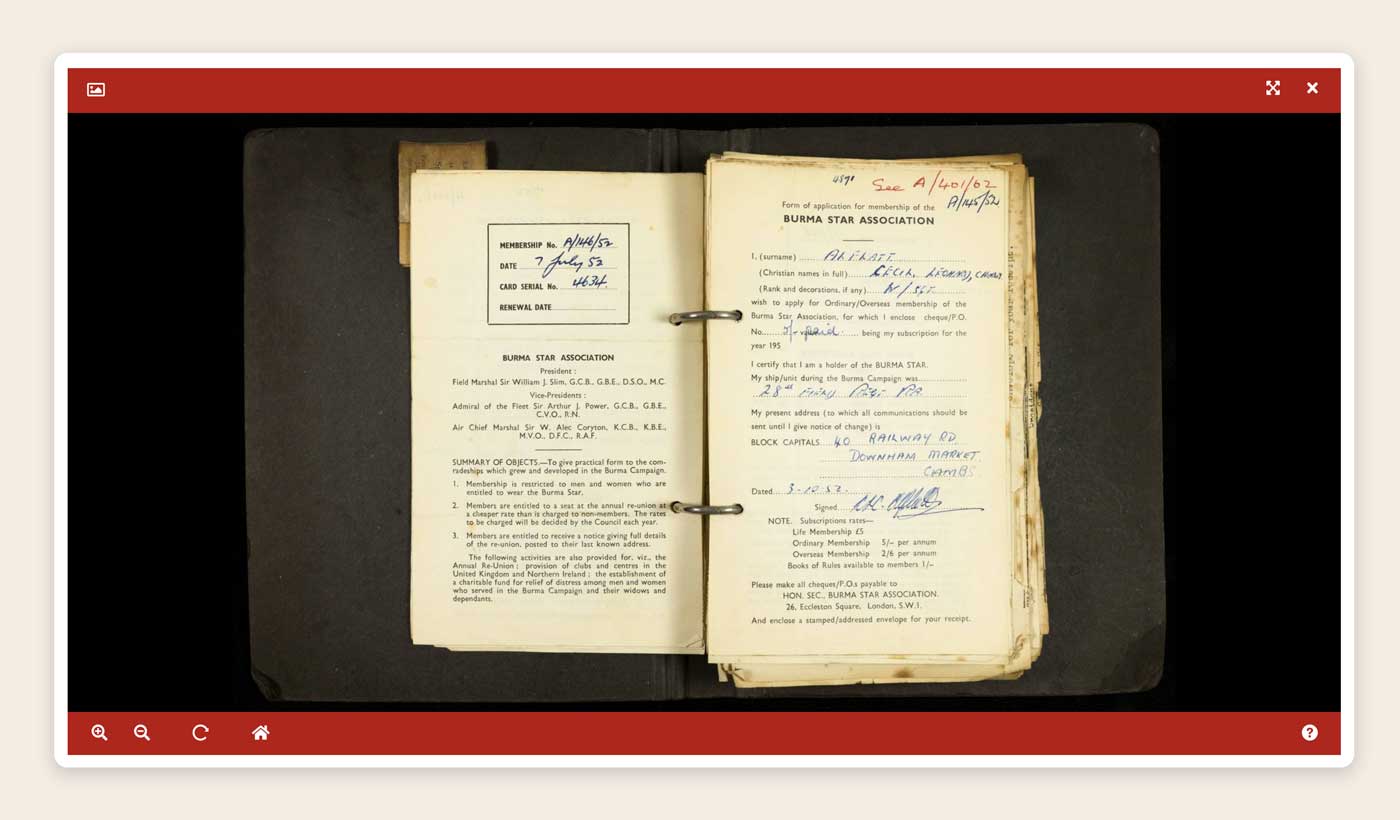 MEMBERSHIP No. A/146/52
DATE 7 July 52
CARD SERIAL No. 4634.
RENEWAL DATE
BURMA STAR ASSOCIATION
President :
Field Marshal Sir William J. Slim, G.C.B., G.B.E., D.S.O., M.C.
Vice-Presidents :
Admiral of the Fleet Sir Arthur J. Power, G.C.B., G.B.E.,
C.V.O., R.N.
Air Chief Marshal Sir W. Alec Coryton, K.C.B., K.B.E.,
M.V.O., D.F.C., R.A.F.
SUMMARY OF OBJECTS.—To give practical form to the com-
radeships which grew and developed in the Burma Campaign.
1. Membership is restricted to men and women who are
entitled to wear the Burma Star.
2. Members are entitled to a seat at the annual re-union at
a cheaper rate than is charged to non-members. The rates
to be charged will be decided by the Council each year.
3. Members are entitled to receive a notice giving full details
of the re-union, posted to their last known address.
The following activities are also provided for, viz., the
Annual Re-Union ; provision of clubs and centres in the
United Kingdom and Northern Ireland ; the establishment of
a charitable fund for relief of distress among men and women
who served in the Burma Campaign and their widows and
dependants.
See A/401/62
A/145/52
Form of application for membership of the
BURMA STAR ASSOCIATION
1. (surname)
(Christian names in full) CECIL,
(Rank and decorations, if any)
wish to apply for Ordinary/Overseas membership of the
Burma Star Association, for which I enclose cheque/P.O.
No. 5/- paid. being my subscription for the
year 195
I certify that I am a holder of the BURMA STAR.
My ship/unit during the Burma Campaign was
28
My present address (to which all communications should be
sent until I give notice of change) is
BLOCK CAPITALS 40 RAILWAY RD.
DOWNHAM MARKET.
CAMBS
Dated 3-10-52.
Signed
NOTE. Subscriptions rates—
Life Membership £5
Ordinary Membership 5/- per annum
Overseas Membership 2/6 per annum
Books of Rules available to members 1/-
Please make all cheques/P.O.s payable to
HON. SEC., BURMA STAR ASSOCIATION.
26, Eccleston Square, London, S.W.1.
And enclose a stamped/addressed envelope for your receipt.